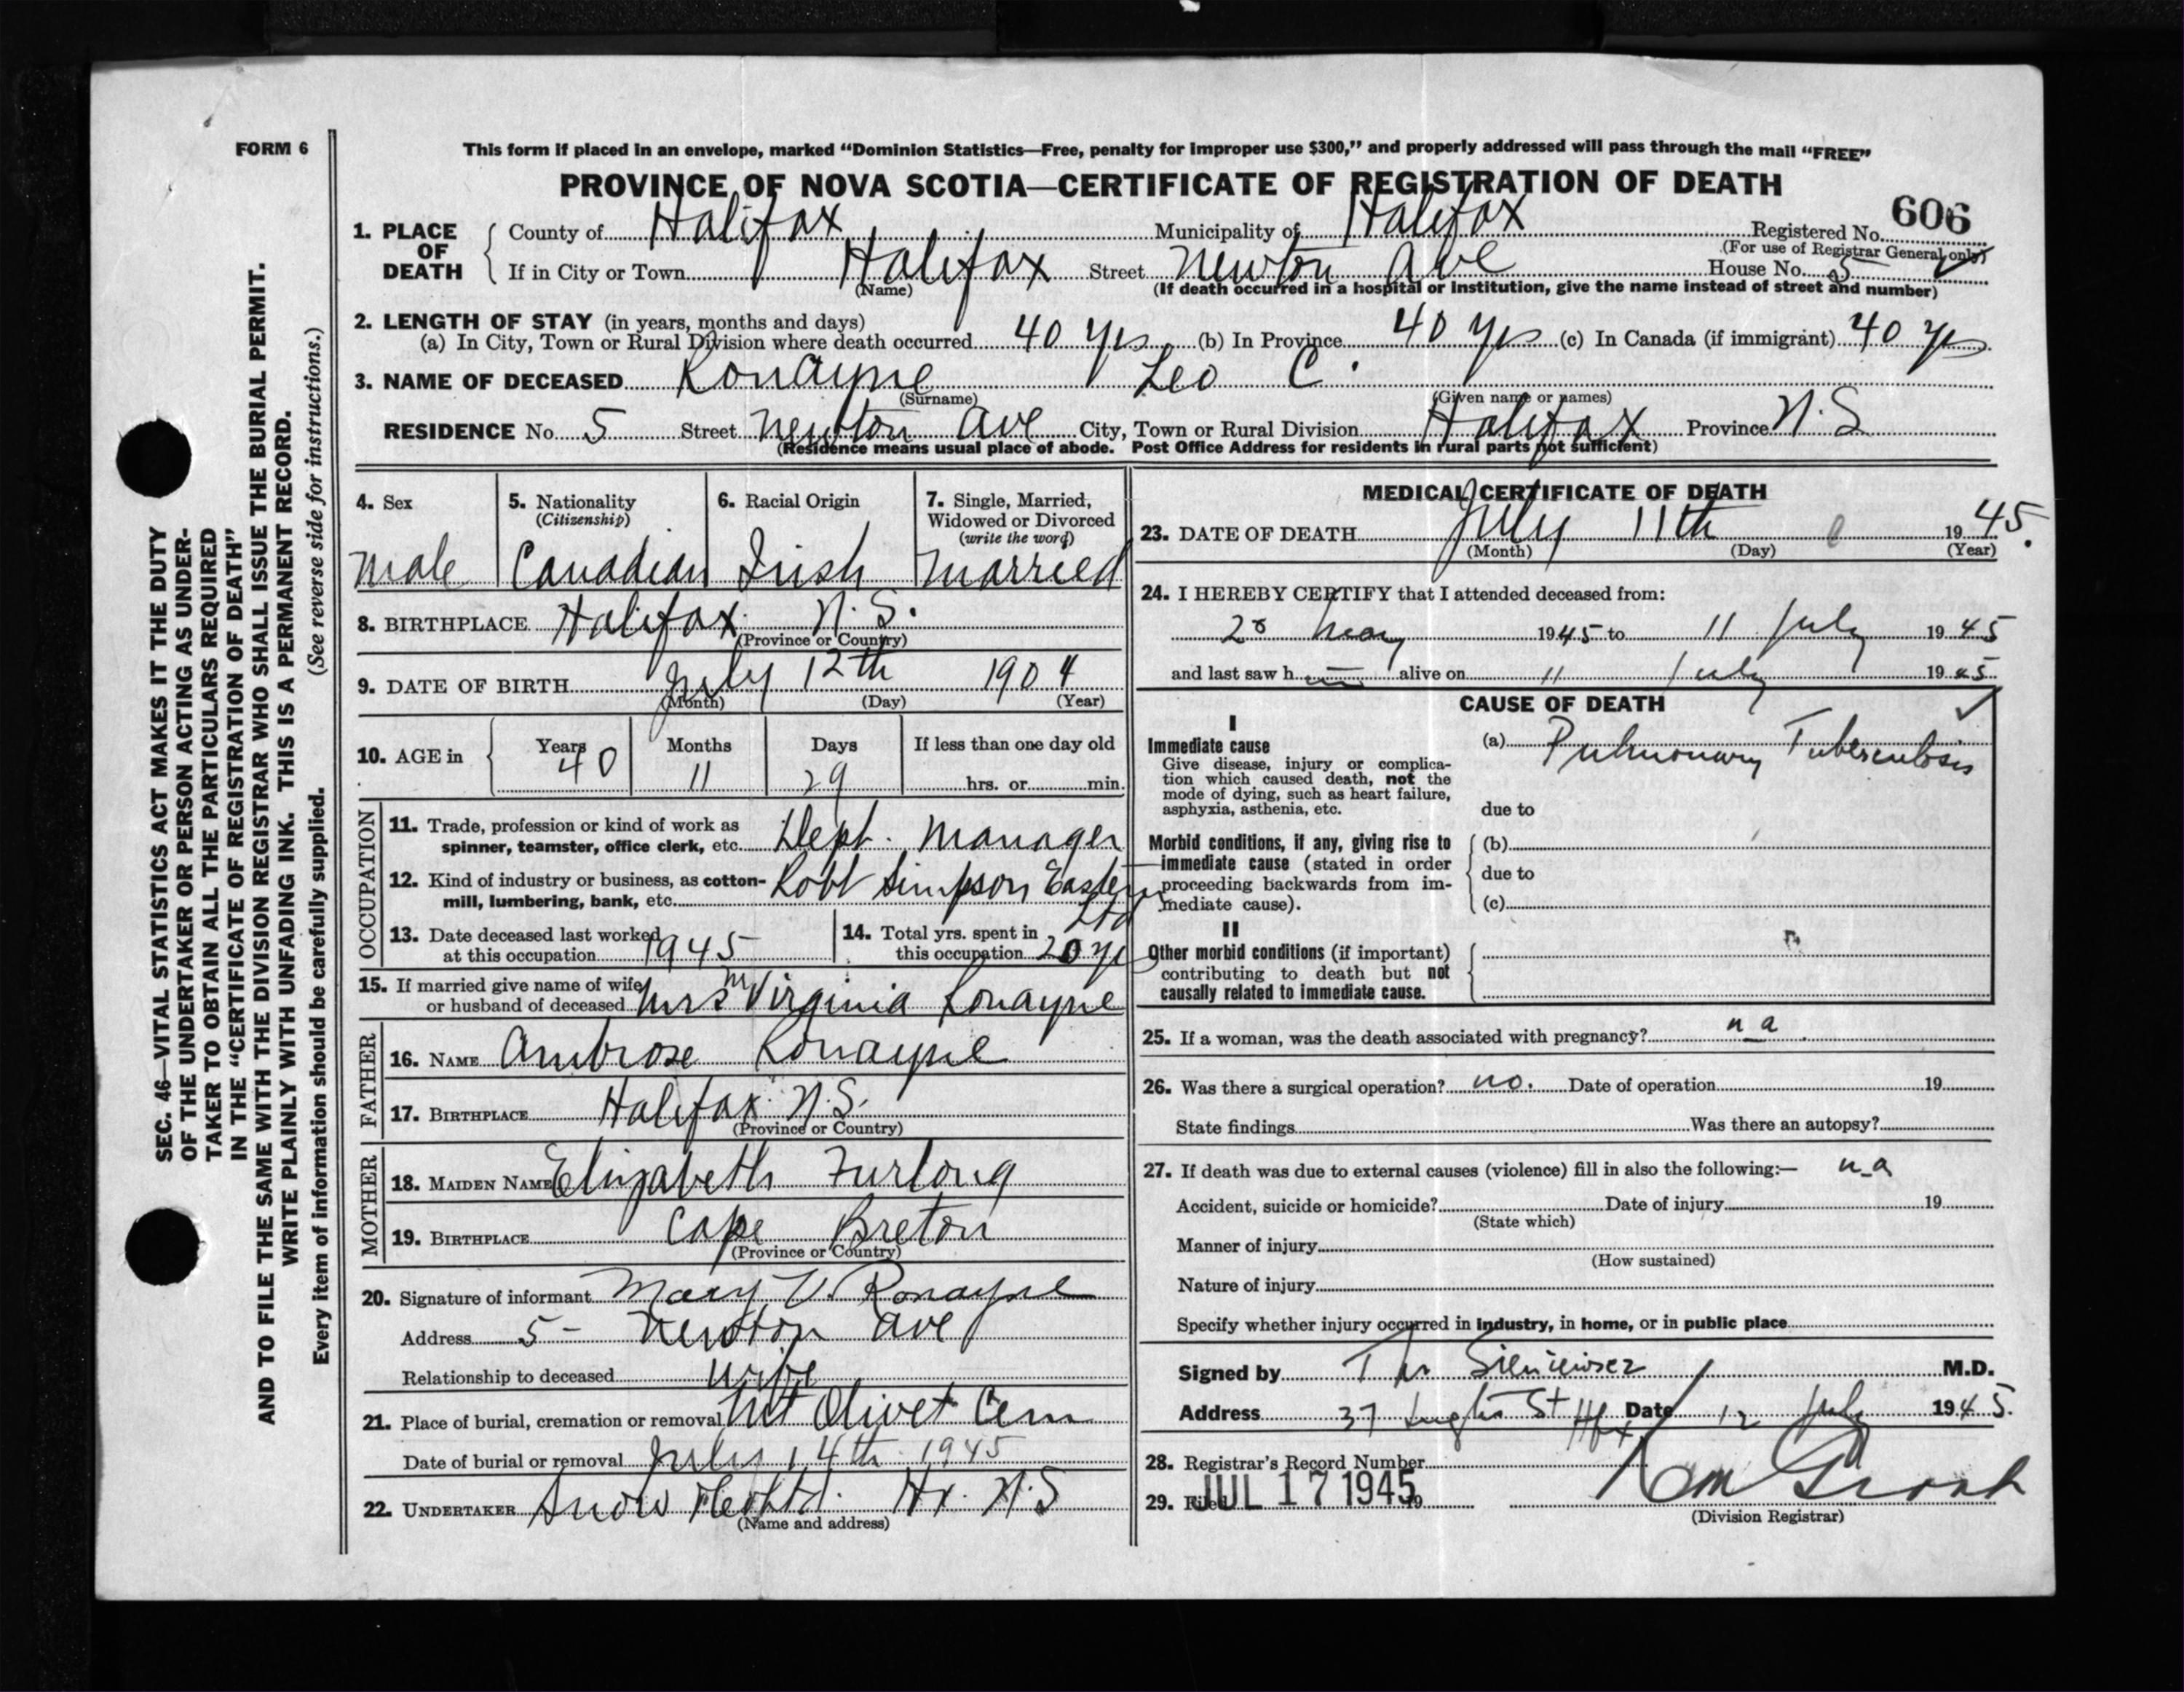 FORM 6
This form if placed in an envelope, marked “Dominion Statistics—Free, penalty for improper use $300,” and properly addressed will pass through the mail “FREE”
PROVINCE OF NOVA SCOTIA—CERTIFICATE OF REGISTRATION OF DEATH
606
1. PLACE OF DEATH
County of Halifax Municipality of Halifax Registered No.
(For use of Registrar General only)
If in City or Town Halifax Street Newton Ave House No. 5
(Name) (If death occurred in a hospital or institution, give the name instead of street and number)
2. LENGTH OF STAY (in years, months and days)
(a) In City, Town or Rural Division where death occurred 40 yrs (b) In Province 40 yrs (c) In Canada (if immigrant) 40 yrs
3. NAME OF DECEASED Ronayne Leo C.
(Surname) (Given name or names)
RESIDENCE No. 5 Street Newton Ave City, Town or Rural Division Halifax Province N.S
(Residence means usual place of abode. Post Office Address for residents in rural parts not sufficient)
4. Sex
Male
5. Nationality
(Citizenship)
Canadian
6. Racial Origin
Irish
7. Single, Married,
Widowed or Divorced
(write the word)
Married
8. BIRTHPLACE Halifax N.S.
(Province or Country)
9. DATE OF BIRTH July 12th 1904
(Month) (Day) (Year)
10. AGE in
Years Months Days If less than one day old
40 11 29 hrs. or min.
OCCUPATION
11. Trade, profession or kind of work as
spinner, teamster, office clerk, etc. Dept. Manager
12. Kind of industry or business, as cotton-
mill, lumbering, bank, etc. Robt Simpson Eastern
Ltd
13. Date deceased last worked
at this occupation 1945
14. Total yrs. spent in
this occupation 20 yrs
15. If married give name of wife
or husband of deceased Mrs M Virginia Ronayne
FATHER
16. NAME Ambrose Ronayne
17. BIRTHPLACE Halifax N.S.
(Province or Country)
MOTHER
18. MAIDEN NAME Elizabeth Furlong
19. BIRTHPLACE Cape Breton
(Province or Country)
20. Signature of informant Mary V. Ronayne
Address 5- Newton Ave
Relationship to deceased wife
21. Place of burial, cremation or removal Mt Olivet Cem
Date of burial or removal July 14th 1945
22. UNDERTAKER Snow Hx. N.S
(Name and address)
MEDICAL CERTIFICATE OF DEATH
23. DATE OF DEATH July 11th 1945.
(Month) (Day) (Year)
24. I HEREBY CERTIFY that I attended deceased from:
20 May 1945 to 11 July 1945
and last saw h alive on 11 July 1945
CAUSE OF DEATH
I
Immediate cause
Give disease, injury or complica-
tion which caused death, not the
mode of dying, such as heart failure,
asphyxia, asthenia, etc.
(a) Pulmonary Tuberculosis
due to
Morbid conditions, if any, giving rise to
immediate cause (stated in order
proceeding backwards from im-
mediate cause).
(b)
due to
(c)
II
Other morbid conditions (if important)
contributing to death but not
causally related to immediate cause.
25. If a woman, was the death associated with pregnancy? n a
26. Was there a surgical operation? no. Date of operation 19
State findings Was there an autopsy?
27. If death was due to external causes (violence) fill in also the following:— n a
Accident, suicide or homicide? Date of injury 19
(State which)
Manner of injury
(How sustained)
Nature of injury
Specify whether injury occurred in industry, in home, or in public place
Signed by M.D.
Address 37 St Hfx Date 12 July 1945.
28. Registrar's Record Number
29. Filed JUL 17 1945 19
(Division Registrar)
SEC. 46—VITAL STATISTICS ACT MAKES IT THE DUTY
OF THE UNDERTAKER OR PERSON ACTING AS UNDER-
TAKER TO OBTAIN ALL THE PARTICULARS REQUIRED
IN THE “CERTIFICATE OF REGISTRATION OF DEATH”
AND TO FILE THE SAME WITH THE DIVISION REGISTRAR WHO SHALL ISSUE THE BURIAL PERMIT.
WRITE PLAINLY WITH UNFADING INK. THIS IS A PERMANENT RECORD.
Every item of information should be carefully supplied. (See reverse side for instructions.)